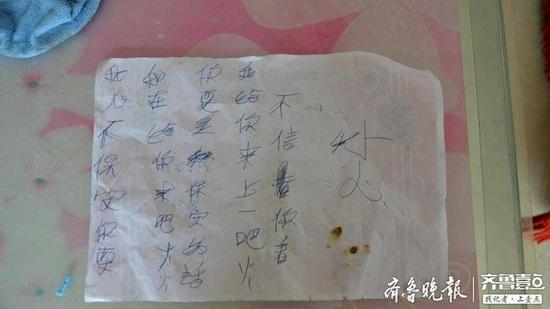 小心
不信你看
我给你来上一吧火
你要是保安的话
我在给你来吧火火
我不保安的要
齐鲁晚报
齐鲁壹点
找记者·上壹点